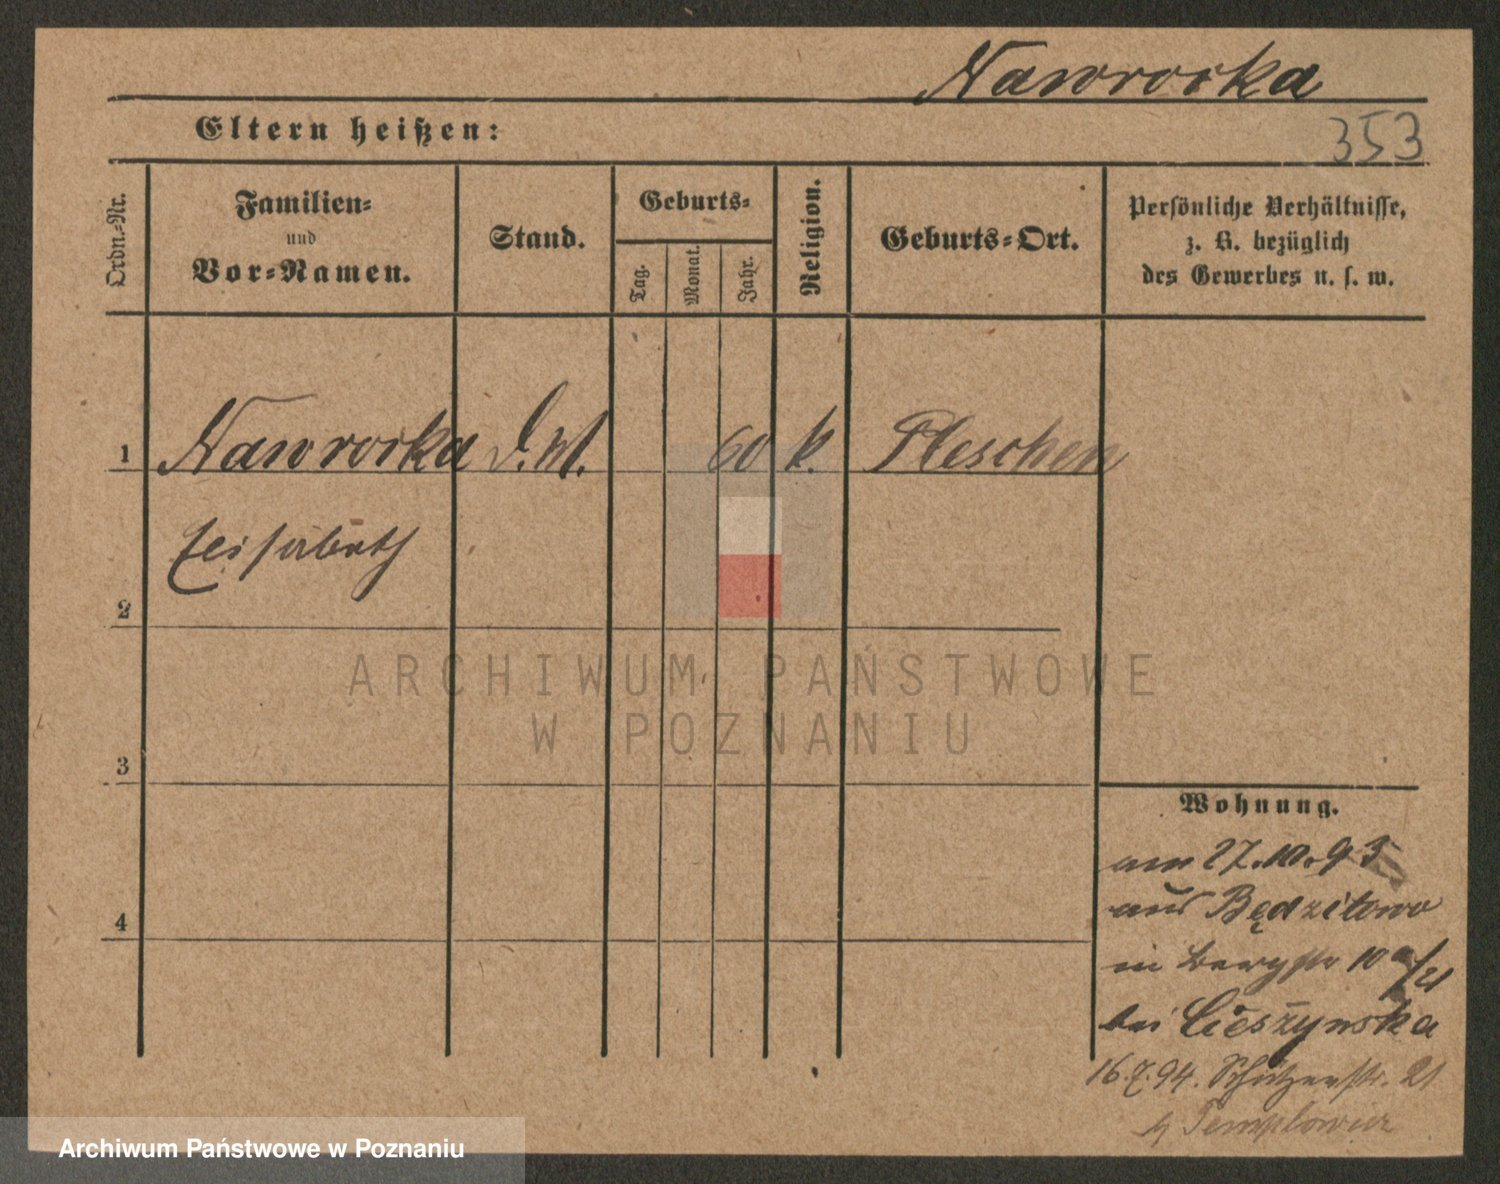 Nawrocka
Eltern heißen:
353
Ordn.-Nr.
Familien-
und
Vor-Namen.
Stand.
Geburts-
Tag.
Monat.
Jahr.
Religion.
Geburts-Ort.
Persönliche Verhältnisse,
z. B. bezüglich
des Gewerbes u. s. w.
1 Nawrocka 60 k. Pleschen
Elisabeth
2
ARCHIWUM PAŃSTWOWE
W POZNANIU
3
Wohnung.
am 27.10.93
aus Będzitowo
4
in Bergstr 10a/21
bei Cieszynska
16.7.94. Schützenstr. 21
Archiwum Państwowe w Poznaniu